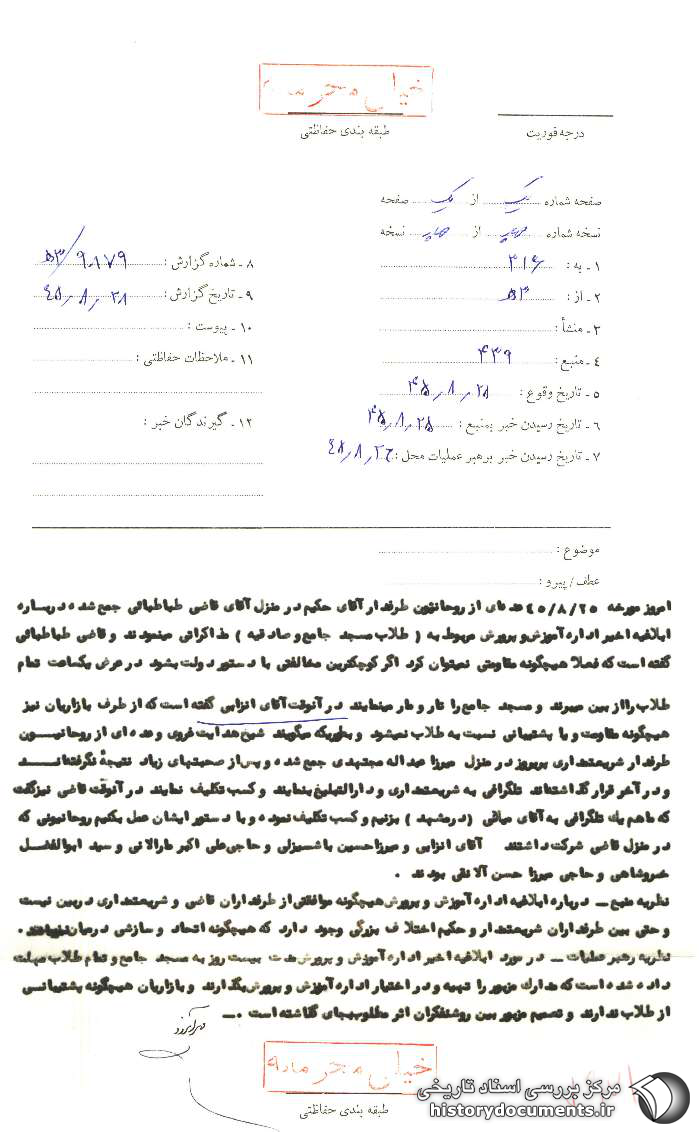 خیلی محرمانه
طبقه بندی حفاظتی
درجه فوریت
صفحه شماره یک از یک صفحه
نسخه شماره چهار از چهار نسخه
۱ ـ به : ۳۱۶
۲ ـ از : ۵۳
۳ ـ منشأ :
۴ ـ منبع : ۴۳۹
۵ ـ تاریخ وقوع :
۶ ـ تاریخ رسیدن خبر بمنبع :
۷ ـ تاریخ رسیدن خبر برهبر عملیات محل :
۸ ـ شماره گزارش :
۹ ـ تاریخ گزارش :
۱۰ ـ پیوست :
۱۱ ـ ملاحظات حفاظتی :
۱۲ ـ گیرندگان خبر :
موضوع :
عطف / پیرو :
امروز مورخه ۴۵/۸/۲۵ عده‌ای از روحانیون طرفدار آقای حکیم در منزل آقای قاضی طباطبائی جمع شده درباره
ابلاغیه اخیر اداره آموزش و پرورش مربوط به ( طلاب مسجد جامع و صادقیه ) مذاکراتی مینمودند و قاضی طباطبائی
گفته است که فعلاً هیچگونه مقاومتی نمیتوان کرد اگر کوچکترین مخالفتی با دستور دولت بشود در عرض یکساعت تمام
طلاب را از بین میبرند و مسجد جامع را تار و مار مینمایند در آنوقت آقای انزابی گفته است که از طرف بازاریان نیز
هیچگونه مقاومت و یا پشتیبانی نسبت به طلاب نمیشود و بطوریکه میگویند شیخ هدایت غروی و عده ای از روحانیون
طرفدار شریعتمداری پریروز در منزل میرزا عبداله مجتهدی جمع شده و پس از صحبتهای زیاد نتیجهٔ نگرفته‌اند
و در آخر قرار گذاشته‌اند تلگرافی به شریعتمداری و دارالتبلیغ بنمایند و کسب تکلیف نمایند در آنوقت قاضی نیز گفت
که ما هم یک تلگرافی به آقای میلانی ( در مشهد ) بزنیم و کسب تکلیف نموده و با دستور ایشان عمل بکنیم روحانیونی که
در منزل قاضی شرکت داشتند آقای انزابی و میرزا حسین باشسیزلی و حاجی علی اکبر طارلانی و سید ابوالفضل
خسروشاهی و حاجی میرزا حسن آلانقی بودند .
نظریه منبع ـ درباره ابلاغیه اداره آموزش و پرورش هیچگونه موافقتی از طرفداران قاضی و شریعتمداری در بین نیست
و حتی بین طرفداران شریعتمدار و حکیم اختلاف بزرگی وجود دارد که هیچگونه اتحاد و سازشی در میان
نظریه رهبر عملیات ـ در مورد ابلاغیه اخیر اداره آموزش و پرورش مدت بیست روز به مسجد جامع و تمام طلاب مهلت
داده شده است که مدارک مزبور را تهیه و در اختیار اداره آموزش و پرورش بگذارند و بازاریان هیچگونه پشتیبانی
از طلاب ندارند و تصمیم مزبور بین روشنفکران اثر مطلوب بجای گذاشته است . ـ
خیلی محرمانه
طبقه بندی حفاظتی
مرکز بررسی اسناد تاریخی
historydocuments.ir